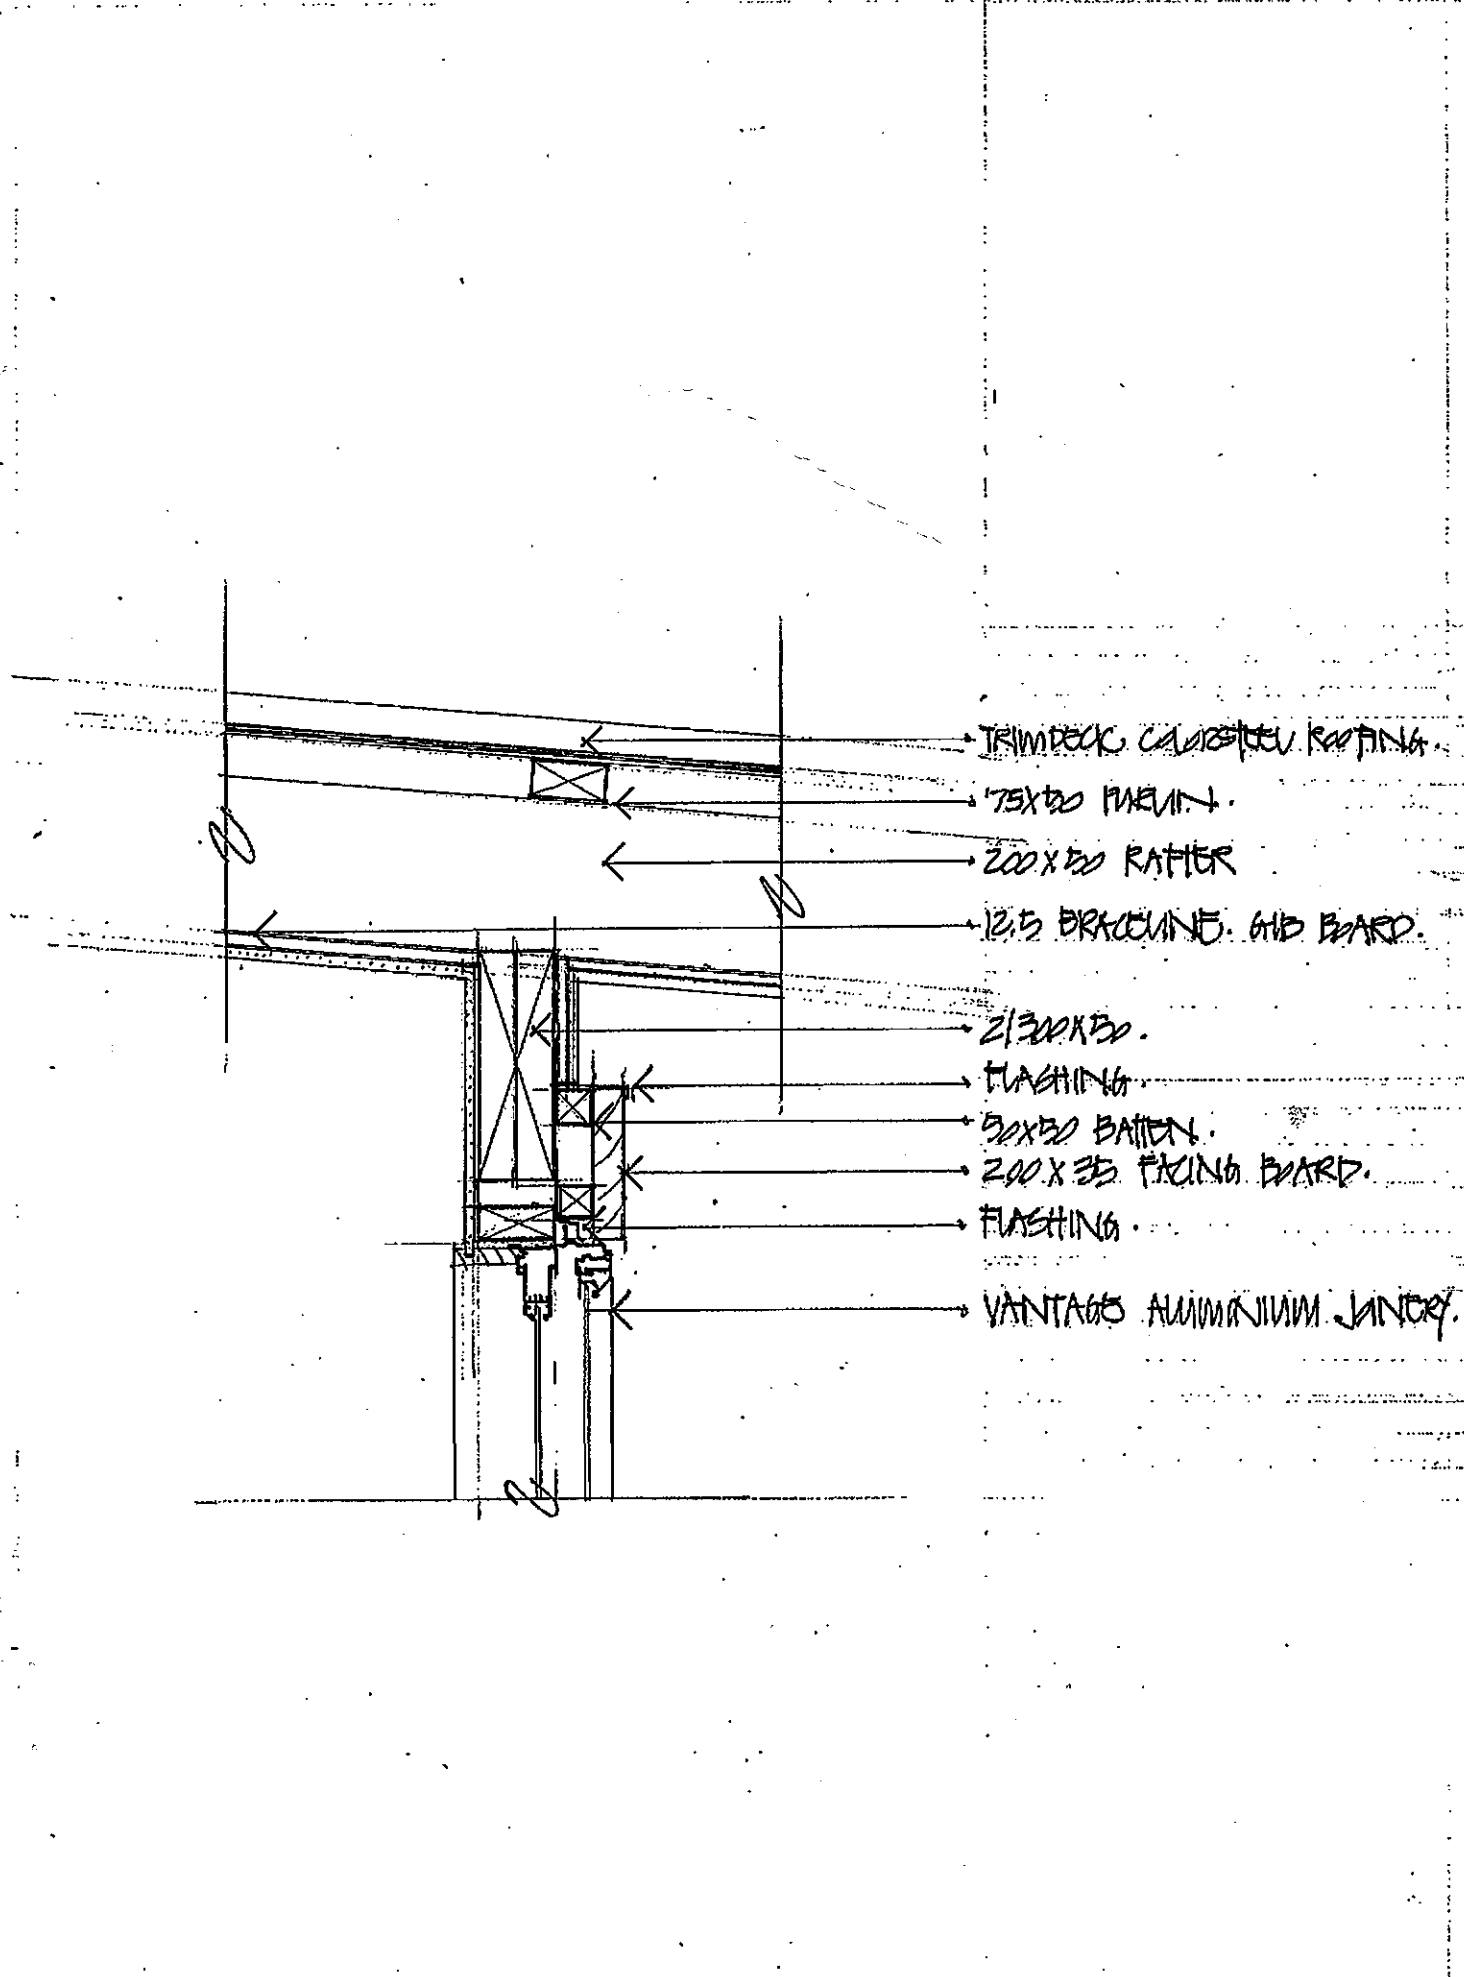 TRIMDECK COLORSTEEL ROOFING.
75X50 PURLIN.
200X50 RAFTER
12.5 BRACELINE. GIB BOARD.
2/300X50.
FLASHING.
50X50 BATTEN.
200X35 FACING BOARD.
FLASHING.
VANTAGE ALUMINIUM JOINERY.